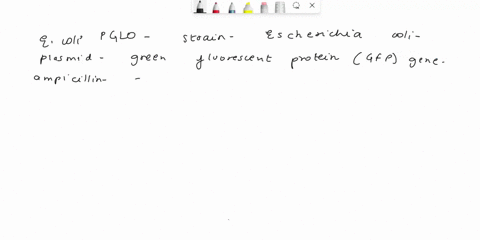 E. coli PGLO - strain - Escherichia coli -
plasmid - green fluorescent protein (GFP) gene.
ampicillin - -